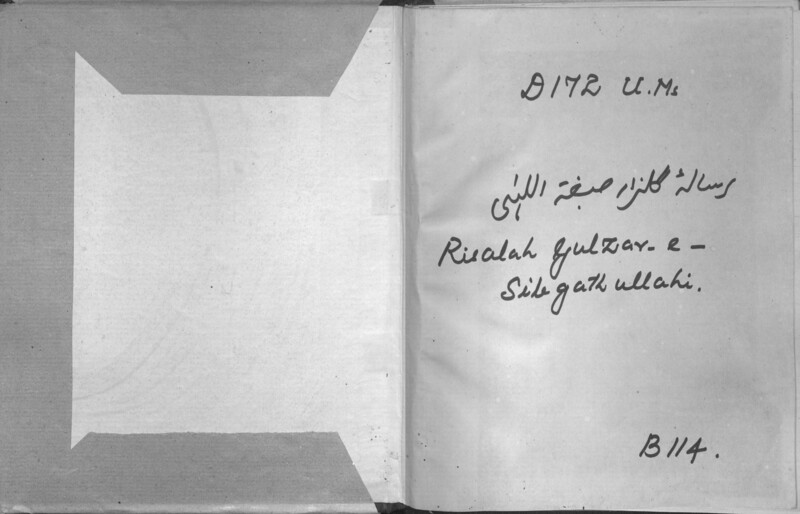 D172 U.Ms
رسالۂ گلزار صبغۃ اللہٰی
Risalah Gulzar-e-
Sibgathullahi.
B114.